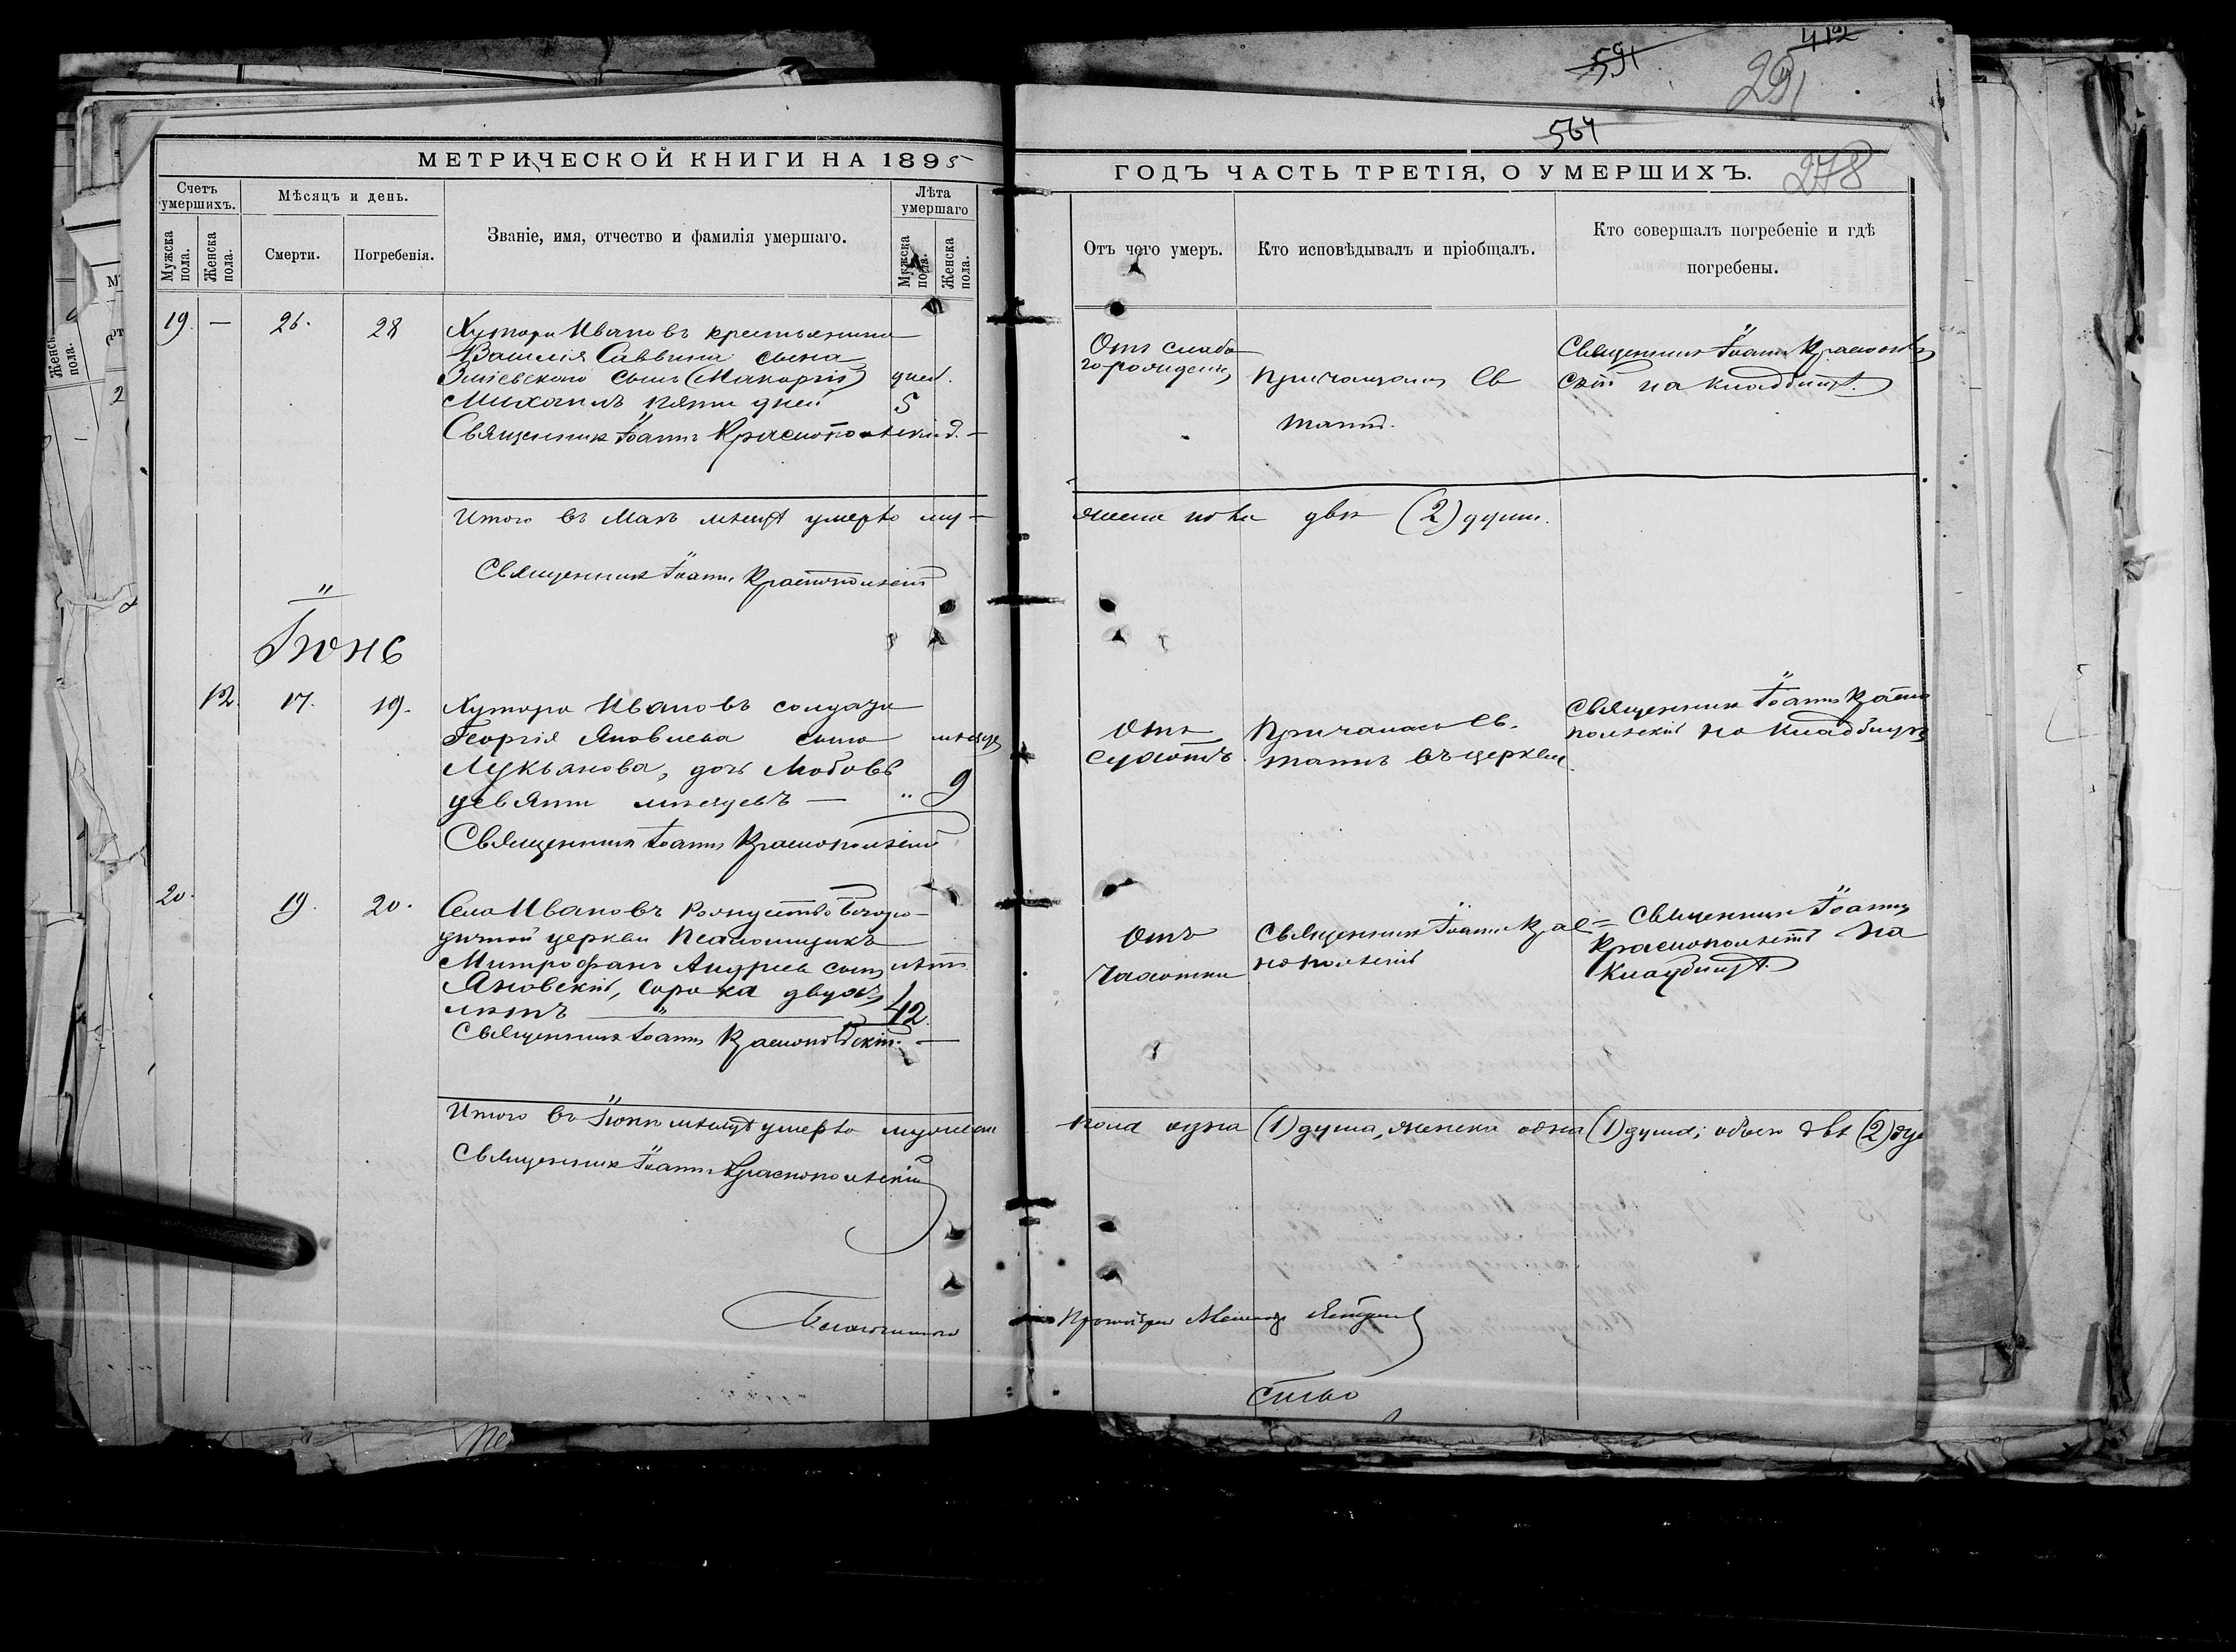 591
412
291
564
278
МЕТРИЧЕСКОЙ КНИГИ НА 1895
ГОДЪ ЧАСТЬ ТРЕТІЯ, О УМЕРШИХЪ.
Счетъ умершихъ.
Мужска пола.
Женска пола.
Мѣсяцъ и день.
Смерти.
Погребенія.
Званіе, имя, отчество и фамилія умершаго.
Лѣта умершаго
Мужска пола.
Женска пола.
Отъ чего умеръ.
Кто исповѣдывалъ и пріобщалъ.
Кто совершалъ погребеніе и гдѣ
погребены.
19. — 26. 28
Хутора Ивановъ крестьянина
Василія Саввина сына
сынъ
дней.
Михаилъ пяти дней 5
Священникъ Іоаннъ Краснопольскій. —
Отъ слабо
го рожденія
Священникъ Іоаннъ Краснополь
скій на кладбищѣ.
Св
таинъ.
Итого въ Маѣ мѣсяцѣ умерло му-
жеска пола двѣ (2) души.
Священникъ Іоаннъ Краснопольскій
Іюнь
12. 17. 19.
Хутора Ивановъ солдата
Георгія Яковлева сына мѣсяце
Лукьянова, дочь Любовь
девяти мѣсяцевъ — " 9
Священникъ Іоаннъ Краснопольскій
Отъ
сухотъ
Причащалась Св.
таинъ въ церкви
Священникъ Іоаннъ Красно
польскій на кладбищѣ
20. 19. 20.
Села Ивановъ Рождество Богоро-
дичной церкви Псаломщикъ
Митрофанъ Андреевъ сынъ лѣтъ
Яновскій, сорока двухъ
лѣтъ — 42.
Священникъ Іоаннъ Краснопольскій. —
Отъ
Чахотки
Священникъ Іоаннъ Крас=
нопольскій
Священникъ Іоаннъ
Краснопольскій на
Кладбищѣ.
Итого въ Іюнѣ мѣсяцѣ умерло мужеска
пола одна (1) душа, женска одна (1) душа; обоего двѣ (2) ду
Священникъ Іоаннъ Краснопольскій
Благочинный
Протоіерей